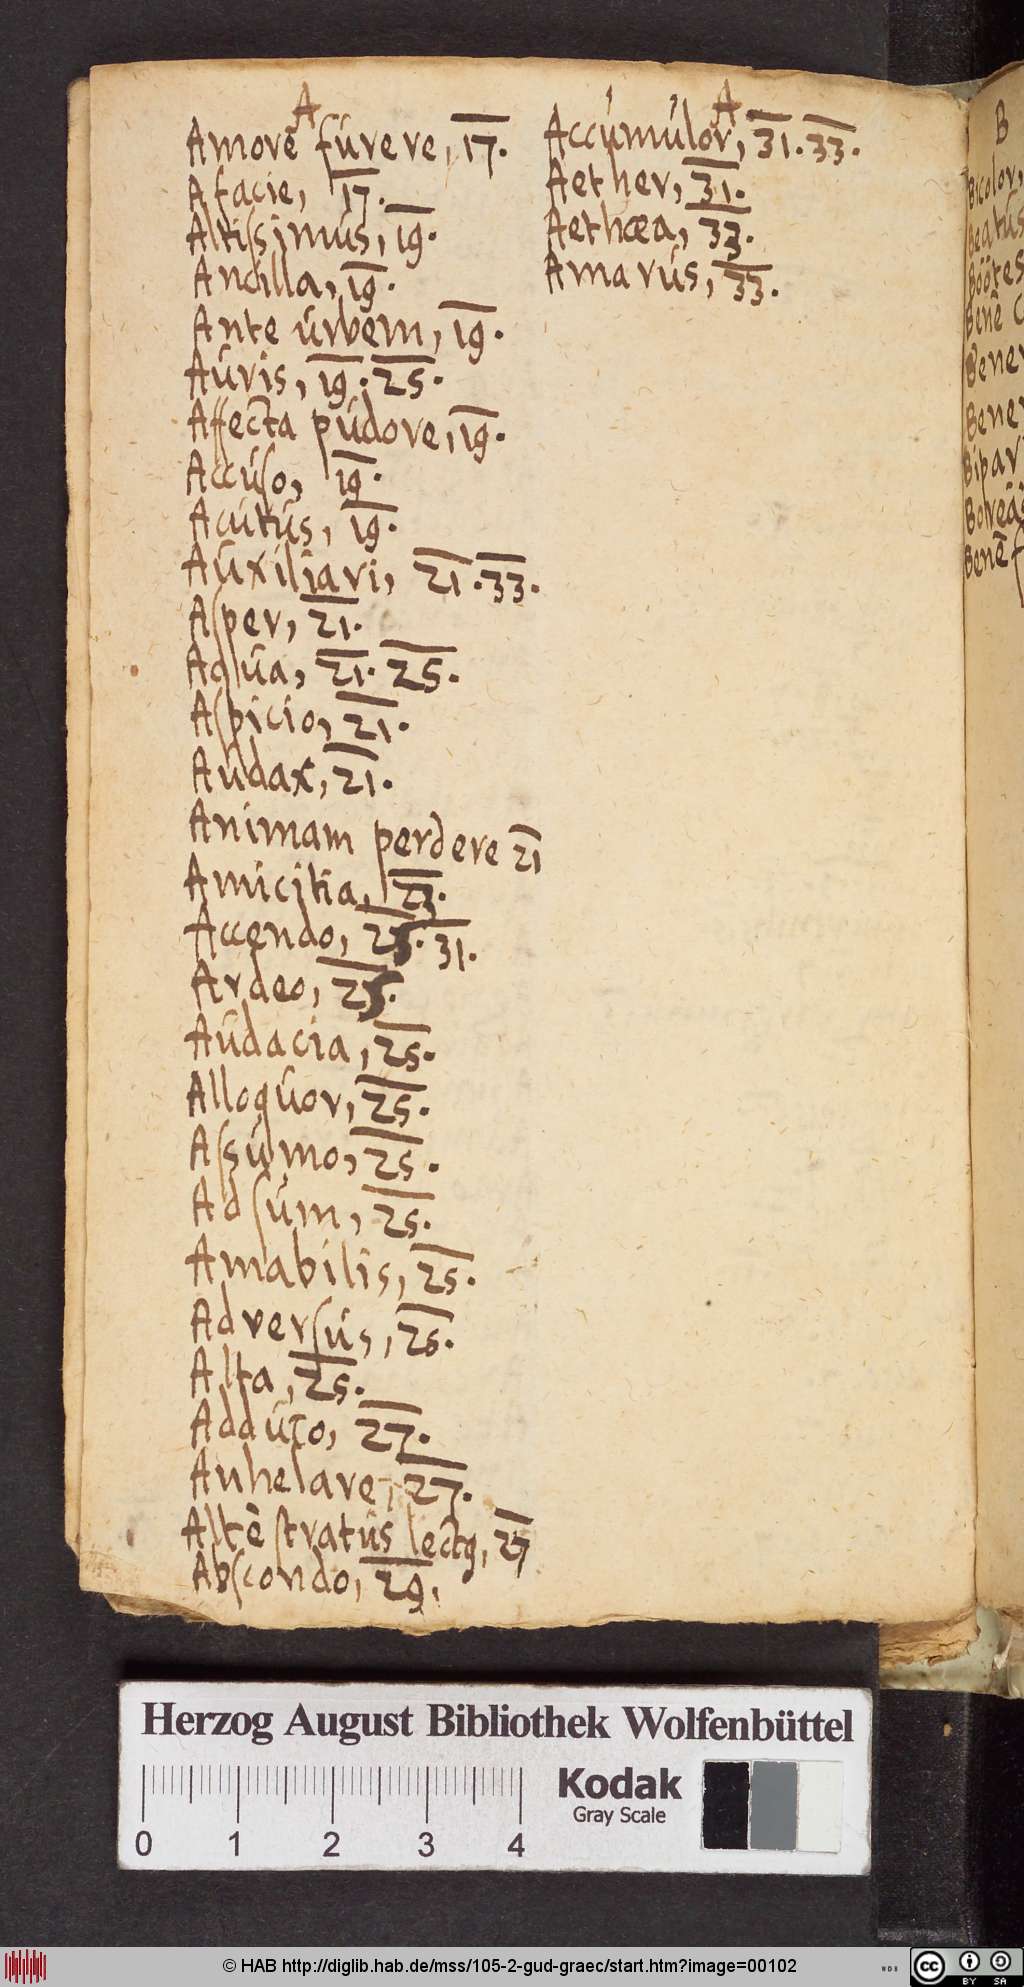 A
Amore furere, 17.
A facie, 17.
Altiſsimus, 19.
Ancilla, 19.
Ante urbem, 19.
Auris, 19. 25.
Affecta pudore, 19.
Accuſo, 19.
Acutus, 19.
Auxiliari, 21. 33.
Aſper, 21.
Aqua, 21. 25.
Aſpicio, 21.
Audax, 21.
Animam perdere 21
Amicitia, 23.
Accendo, 25. 31.
Ardeo, 25.
Audacia, 25.
Alloquor, 25.
Aſsumo, 25.
Adſum, 25.
Amabilis, 25.
Adverſus, 25.
Alta, 25.
Adduco, 27.
Anhelare, 27.
Altè ſtratus lectꝰ, 27
Abſcondo, 29.
A
Accumulor, 31. 33.
Aether, 31.
Aethæa, 33.
Amarus, 33.
B
Bicolor,
Beatus
Böotes
Benè C
Bener
Bener
Bipar
Boreä
Benè f
Herzog August Bibliothek Wolfenbüttel
Kodak
Gray Scale
0 1 2 3 4
© HAB http://diglib.hab.de/mss/105-2-gud-graec/start.htm?image=00102
WDB
cc BY SA